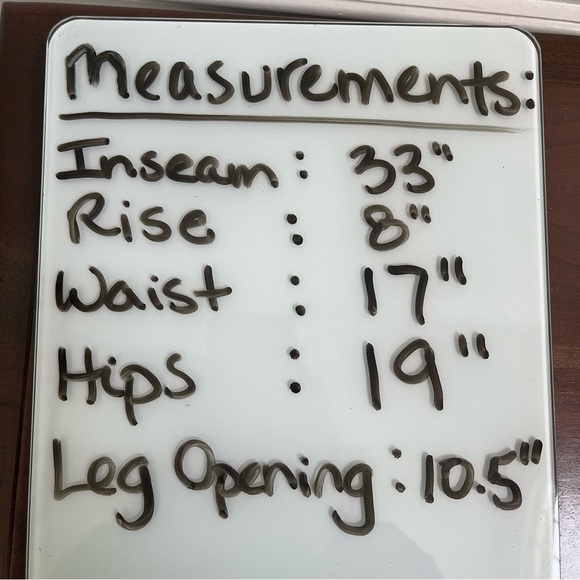 Measurements:
Inseam : 33"
Rise : 8"
Waist : 17"
Hips : 19"
Leg Opening : 10.5"